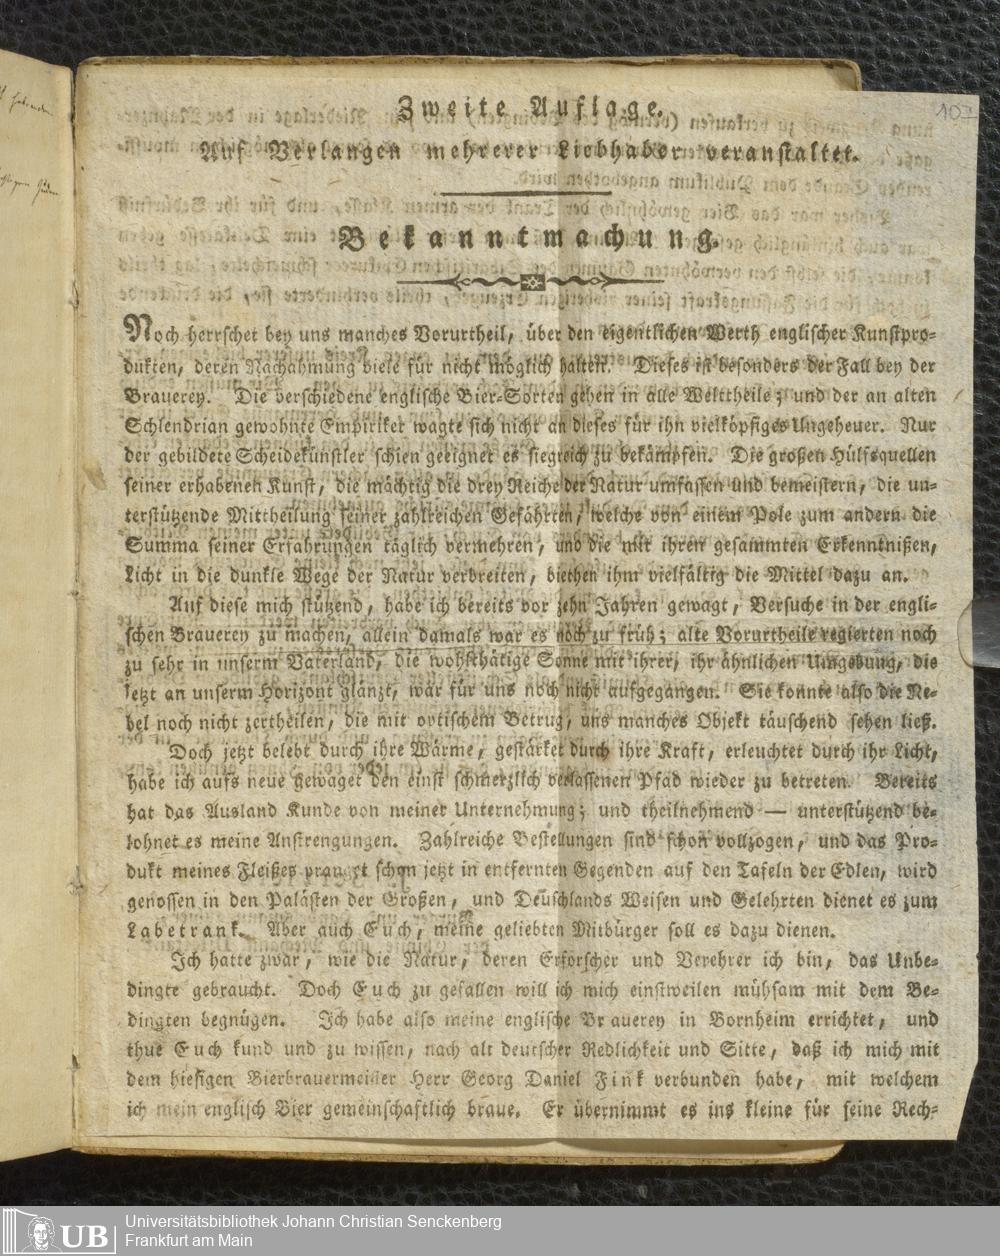 107
Zweite Auflage.
Auf Verlangen mehrerer Liebhaber veranstaltet.
Bekanntmachung.
Noch herrschet bey uns manches Vorurtheil, über den eigentlichen Werth englischer Kunstpro-
dukten, deren Nachahmung viele für nicht möglich halten. Dieses ist besonders der Fall bey der
Brauerey. Die verschiedene englische Bier-Sorten gehen in alle Welttheile; und der an alten
Schlendrian gewohnte Empiriker wagte sich nicht an dieses für ihn vielköpfiges Ungeheuer. Nur
der gebildete Scheidekünstler schien geeignet es siegreich zu bekämpfen. Die großen Hülfsquellen
seiner erhabenen Kunst, die mächtig die drey Reiche der Natur umfassen und bemeistern, die un-
terstützende Mittheilung seiner zahlreichen Gefährten, welche von einem Pole zum andern die
Summa seiner Erfahrungen täglich vermehren, und die mit ihren gesammten Erkenntnißen,
Licht in die dunkle Wege der Natur verbreiten, biethen ihm vielfältig die Mittel dazu an.
Auf diese mich stützend, habe ich bereits vor zehn Jahren gewagt, Versuche in der engli-
schen Brauerey zu machen, allein damals war es noch zu früh; alte Vorurtheile regierten noch
zu sehr in unserm Vaterland, die wohlthätige Sonne mit ihrer, ihr ähnlichen Umgebung, die
jetzt an unserm Horizont glänzt, war für uns noch nicht aufgegangen. Sie konnte also die Ne-
bel noch nicht zertheilen, die mit optischem Betrug, uns manches Objekt täuschend sehen ließ.
Doch jetzt belebt durch ihre Wärme, gestärket durch ihre Kraft, erleuchtet durch ihr Licht,
habe ich aufs neue gewaget den einst schmerzlich verlassenen Pfad wieder zu betreten. Bereits
hat das Ausland Kunde von meiner Unternehmung; und theilnehmend — unterstützend be-
lohnet es meine Anstrengungen. Zahlreiche Bestellungen sind schon vollzogen, und das Pro-
dukt meines Fleißes pranget schon jetzt in entfernten Gegenden auf den Tafeln der Edlen, wird
genossen in den Palästen der Großen, und Deuschlands Weisen und Gelehrten dienet es zum
Labetrank. Aber auch Euch, meine geliebten Mitbürger soll es dazu dienen.
Ich hatte zwar, wie die Natur, deren Erforscher und Verehrer ich bin, das Unbe-
dingte gebraucht. Doch Euch zu gefallen will ich mich einstweilen mühsam mit dem Be-
dingten begnügen. Ich habe also meine englische Brauerey in Bornheim errichtet, und
thue Euch kund und zu wissen, nach alt deutscher Redlichkeit und Sitte, daß ich mich mit
dem hiesigen Bierbrauermeister Herr Georg Daniel Fink verbunden habe, mit welchem
ich mein englisch Bier gemeinschaftlich braue. Er übernimmt es ins kleine für seine Rech-
UB
Universitätsbibliothek Johann Christian Senckenberg
Frankfurt am Main